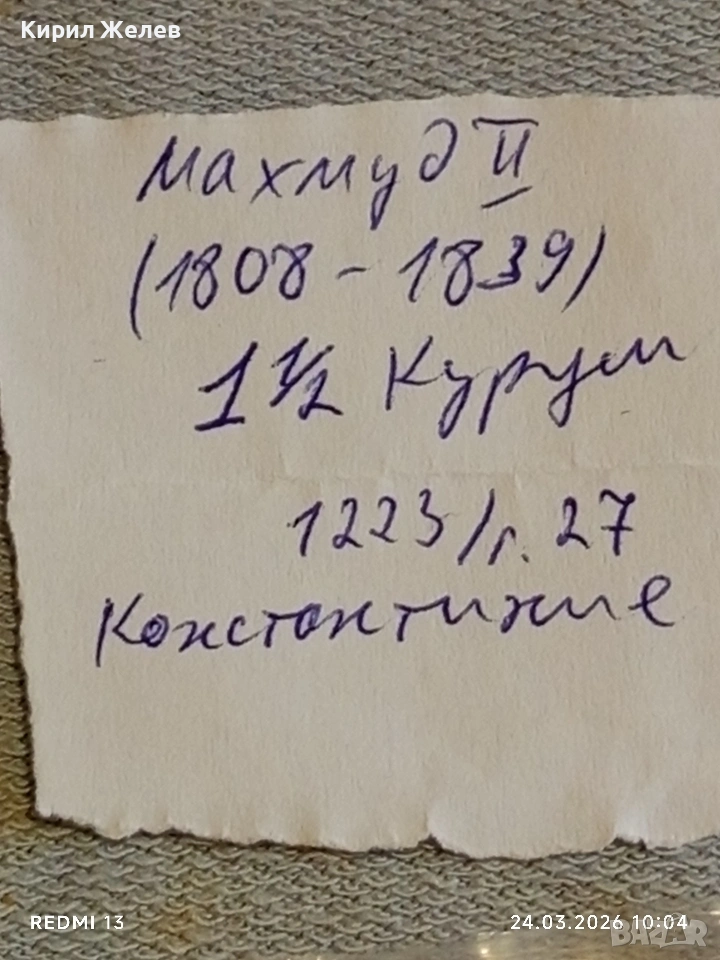 Кирил Желев
Махмуд II
(1808 - 1839)
1 1/2 Куруш
1223/г. 27
Константине
REDMI 13
24.03.2026 10:04
BAZAR